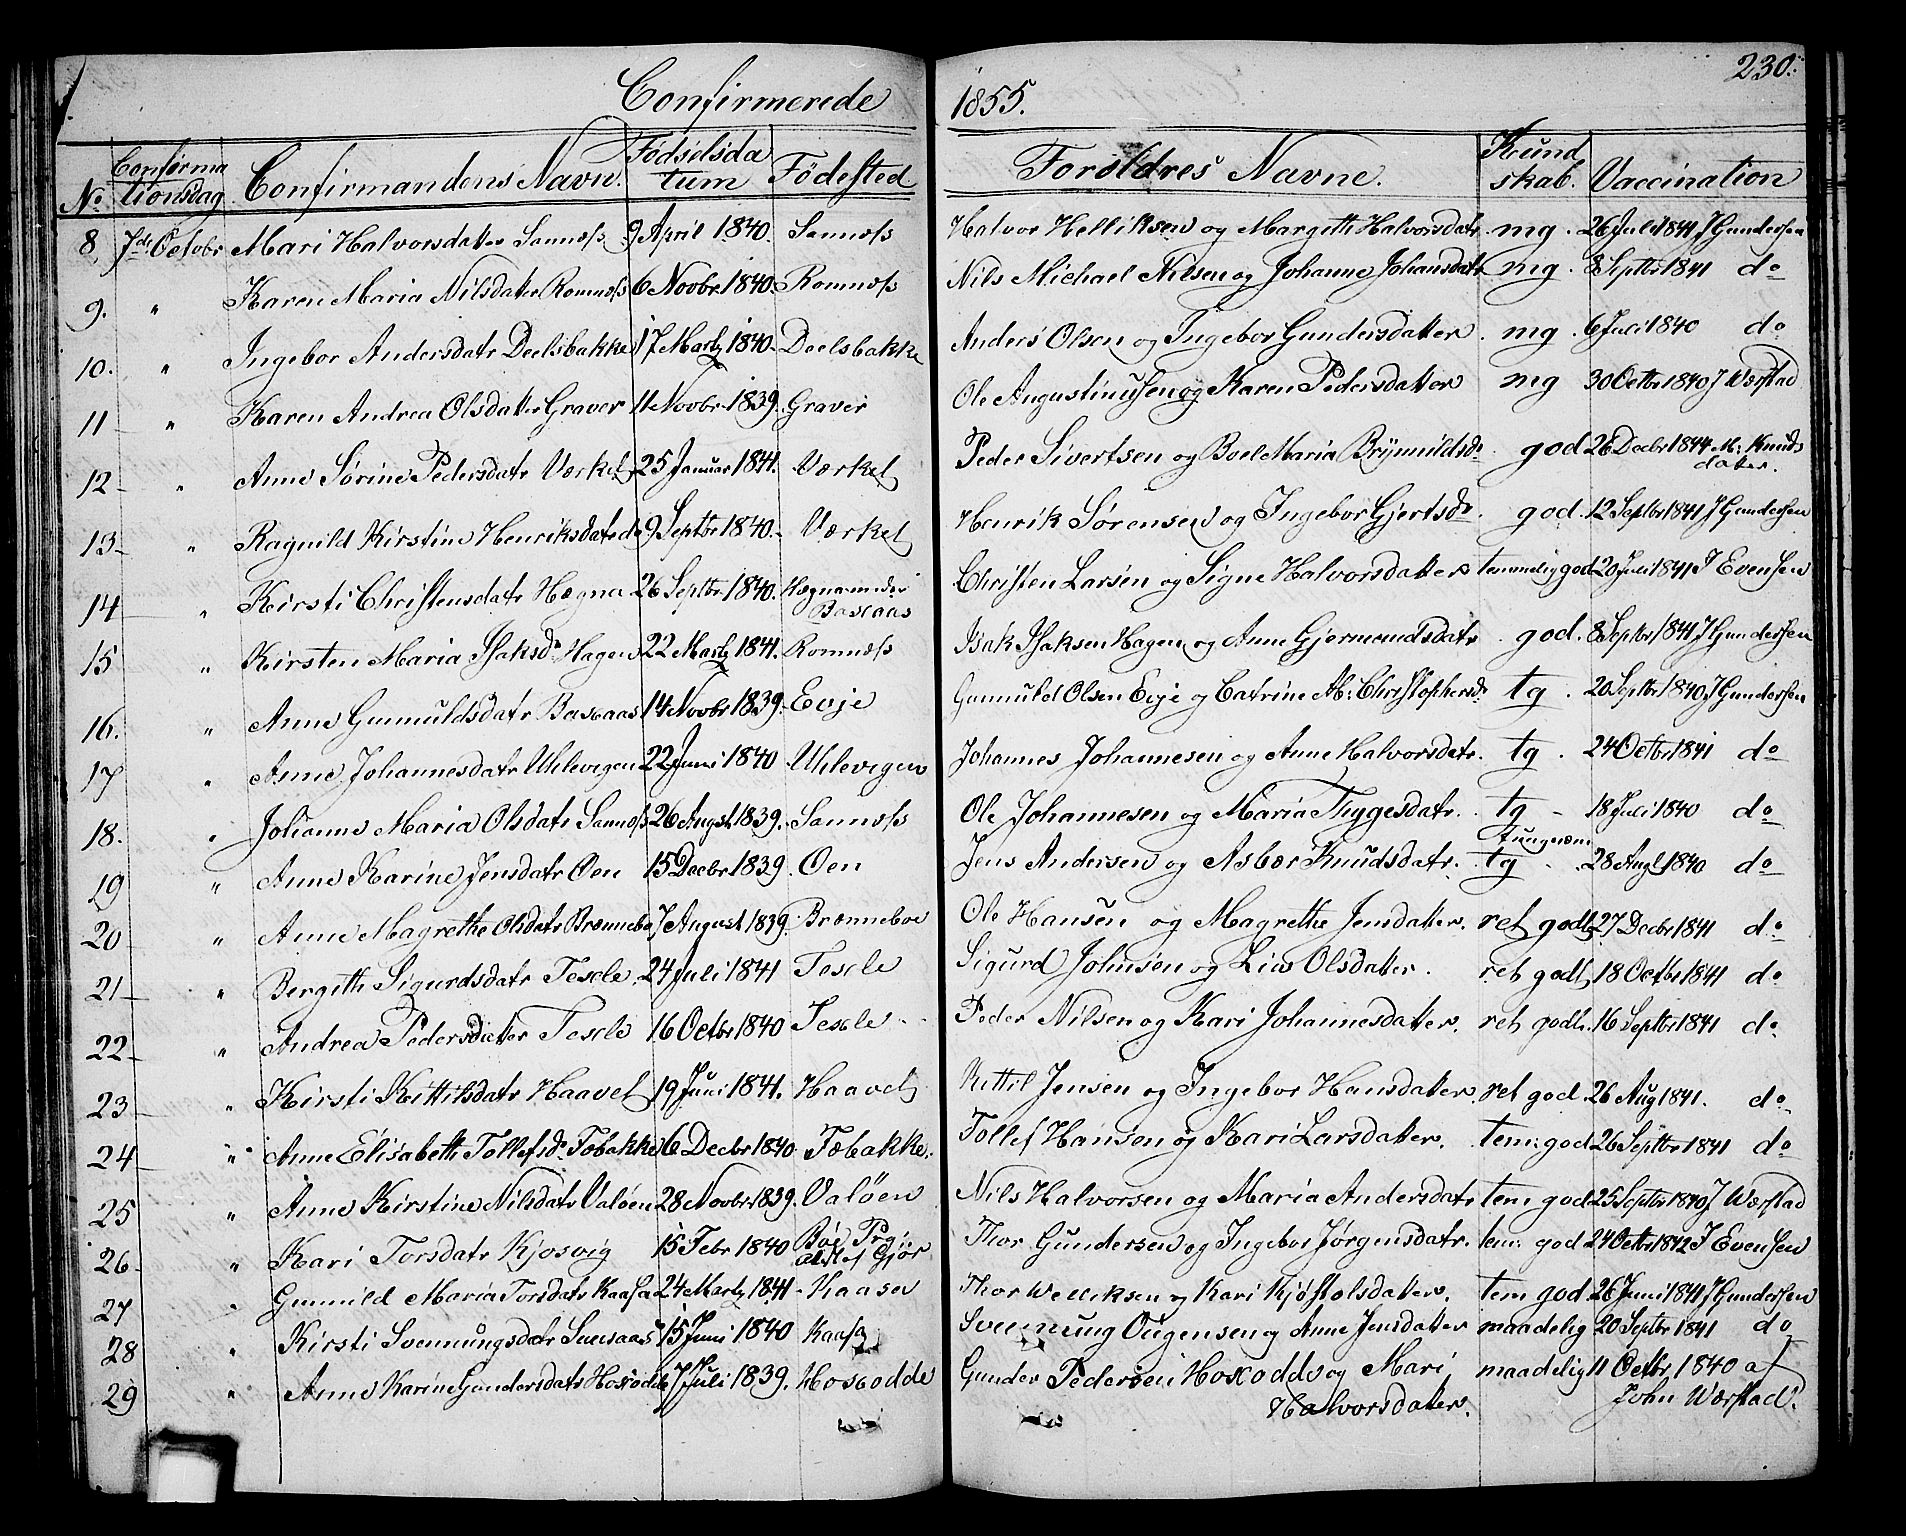 230.
Confirmerede 1855.
No Confirmationsdag Confirmandens Navn. Fødselsdatum Fødested Forældres Navne. Kundskab. Vaccination
8, 7de Octobr Mari Halvorsdatter Sannæss 9 April 1840. Sannæss Halvor Helliksen og Margith Halvorsdatr. mg. 26 Juli 1841 J Gundersen
9. " Karen Maria Nilsdatter Romnæss 6 Novbr 1840. Romnæss Nils Michael Nilsen og Johanne Johansdatr mg. 8 Septbr 1841 do
10. " Ingebor Andersdatr Deelsbakke 17 Martz 1840. Deelsbakke Anders Olsen og Ingebor Gundersdatter. mg. 6 Juli 1840 do
11 " Karen Andrea Olsdatter Graver 11 Novbr 1839. Graver Ole Augustinusen og Karen Pedersdatter mg 30 Octbr 1840 J Værstad
12 " Anne Sørine Pedersdatr Værket 25 Januar 1841. Værket Peder Sivertsen og Boel Maria Brÿnnildsdr. god. 26 Decbr 1844 M: Knuds
datter.
13 " Ragnild Kirstine Henriksdatr do 9 Septbr 1840. Værket Henrik Sørensen og Ingebor Gjertsdr god. 12 Septbr 1841 J Gundersen
14 " Kirsti Christensdatr Hægna 26 Septbr 1840. Hægna under
Baseaas Christen Larsen og Signe Halvorsdatter temmelig god 20 Juli 1841 J Evensen
15 " Kirsten Maria Isaksdr Hagen 22 Martz 1841. Romnæss Isak Isaksen Hagen og Anne Gjermundsdatr. god. 8 Septbr 1841 J Gundersen
16. " Anne Gunnuldsdatr Baseaas 14 Novbr 1839. Evje Gunnuld Olsen Evje og Catrine Ab: Christophersdr tg. 20 Septbr 1840 J Gundersen
17 " Anne Johannesdatr Uhlevigen 22 Juni 1840 Uhlevigen Johannes Johannesen og Anne Halvorsdatr. tg. 24 Octbr 1841 do
18. " Johanne Maria Olsdatr Sannæss 26 Augst 1839. Sannæss Ole Johannesen og Maria Thygesdatr. tg 18 Juli 1840 do
19 " Anne Karine Jensdatr Øen 15 Decbr 1839. Øen Jens Andersen og Asbør Knudsdatr. tungnem
tg. 28 Augt 1840 do
20 " Anne Magrethe Olsdatr Brænneboe 7 August 1839. Brænneboe Ole Hansen og Magrethe Jensdatter. ret godt 27 Decbr 1841 do
21 " Bergith Sigurdsdatr Tesele 24 Juli 1841 Tesele Sigurd Johnsen og Lise Olsdatter. ret godt 18 Octbr 1841 do
22 " Andrea Pedersdatter Tesele 16 Octbr 1840 Tesele Peder Nilsen og Kari Johannesdatter. ret godt. 16 Septbr 1841 do
23 " Kirsti Kittilsdatr Haavet 19 Juni 1841. Haavet Kittil Jensen og Ingebor Hansdatter. ret god. 26 Aug 1841. do
24 " Anne Elisabeth Tollefsdr Fæbakke 6 Decbr 1840 Fæbakke. Tollef Hansen og Kari Larsdatter. tem: god 26 Septbr 1841 do
25 " Anne Kirstine Nilsdatr Valøen 28 Novbr 1839. Valøen Nils Halvorsen og Maria Andersdatr tem god 25 Septbr 1840 J Værstad
26 " Kari Torsdatr Kjosvig 15 Febr 1840 Böe Prg:
Thor Gundersen og Ingebor Jørgensdatr. tem: god 24 Octbr 1842 J Evensen
27 " Gunnild Maria Torsdatr Kaasa 24 Martz 1841 Kaasa Thor Kari Kjøstolsdatter. tem god 26 Juni 1841 J Gundersen
28 " Kirsti Svennungsdatr 15 Juni 1840 Kaasa Svennung Ougensen og Anne Jensdatter maadelig 20 Septbr 1841 do
29 " Anne Karine Gundersdatr Hoxodde 7 Juli 1839. Hoxodde Gunder Pedersen Hoxodde og Mari
Halvorsdatter. maadelig 11 Octbr 1840 af
John Værstad.